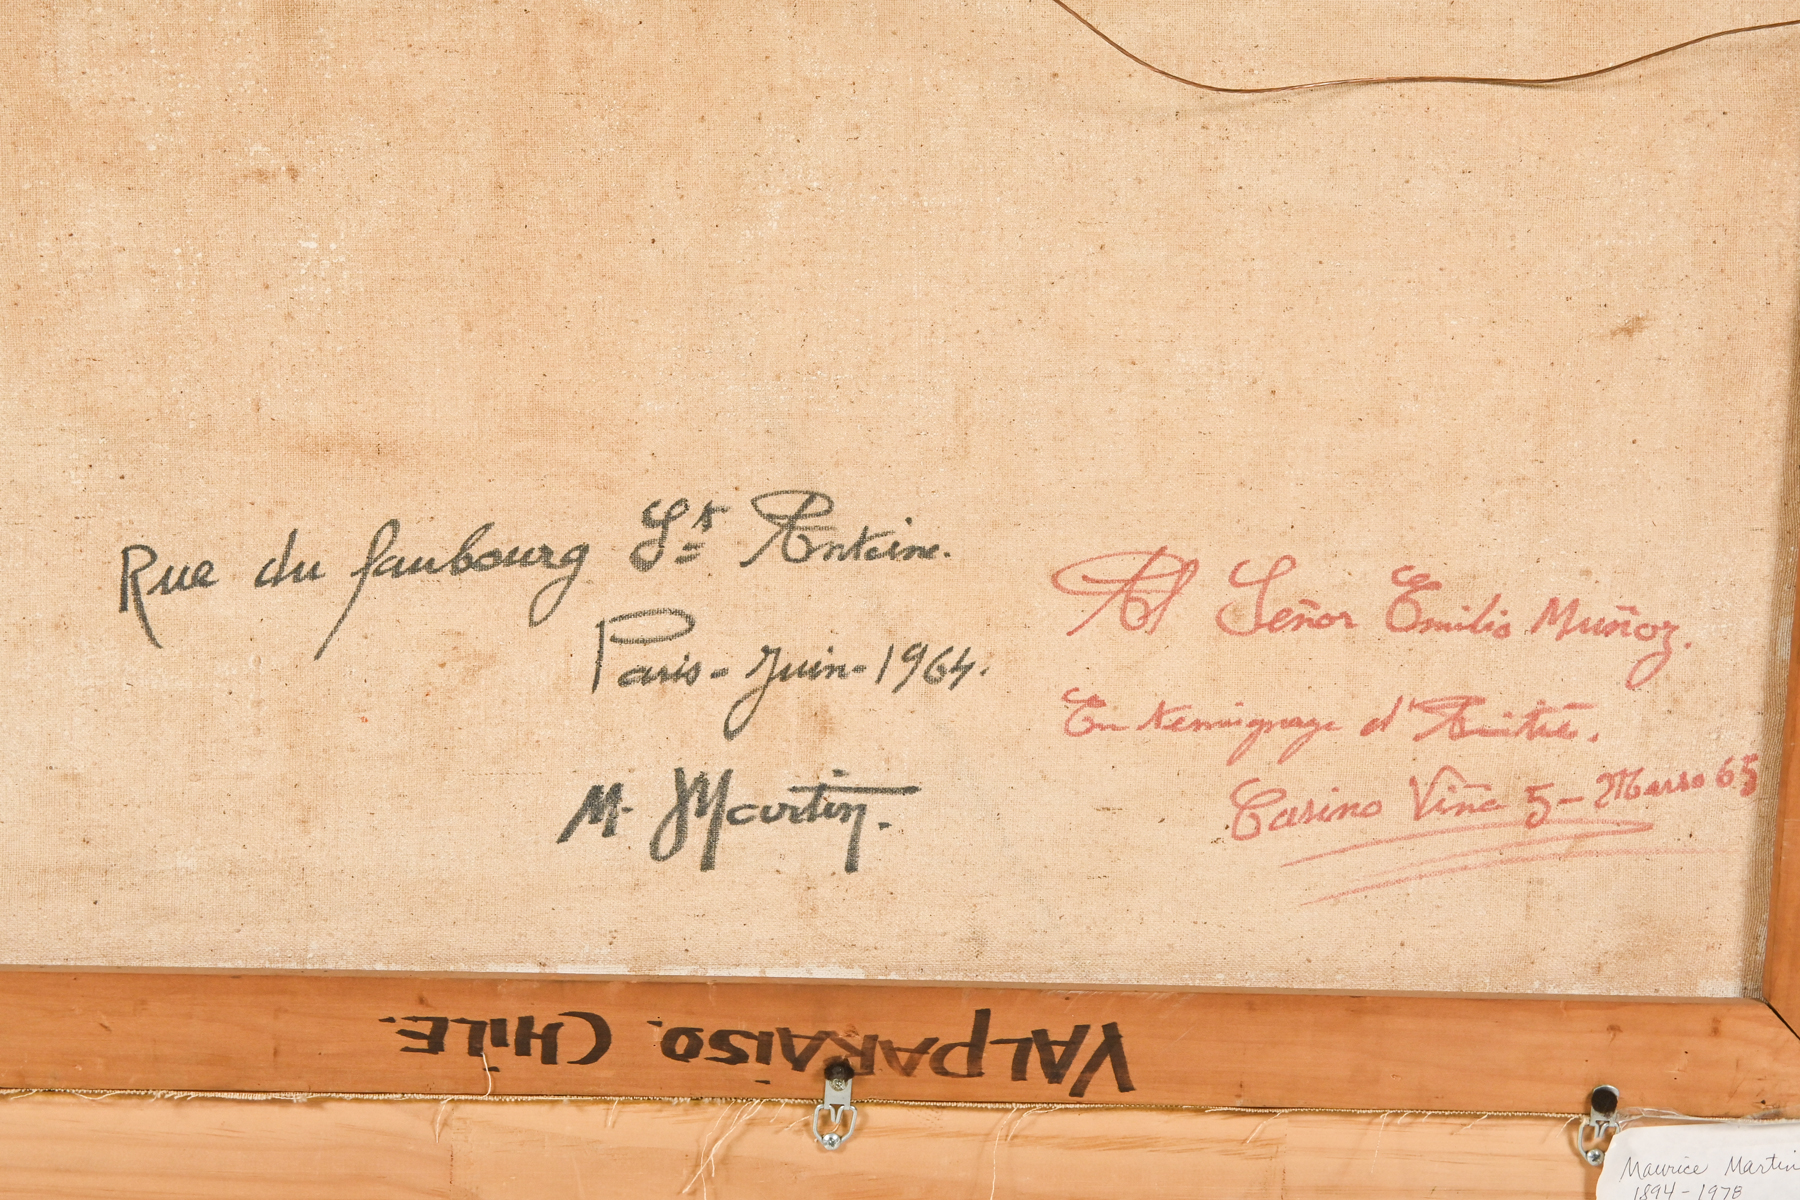 Rue du faubourg St Antoine.
Paris - Juin - 1964.
M. Martin.
Al Señor Emilio Muñoz.
En temoignage d'Amitié.
Casino Viña 5 - Marso 65
VALPARAiSO. CHiLE.
Maurice Martin
1894 - 1978